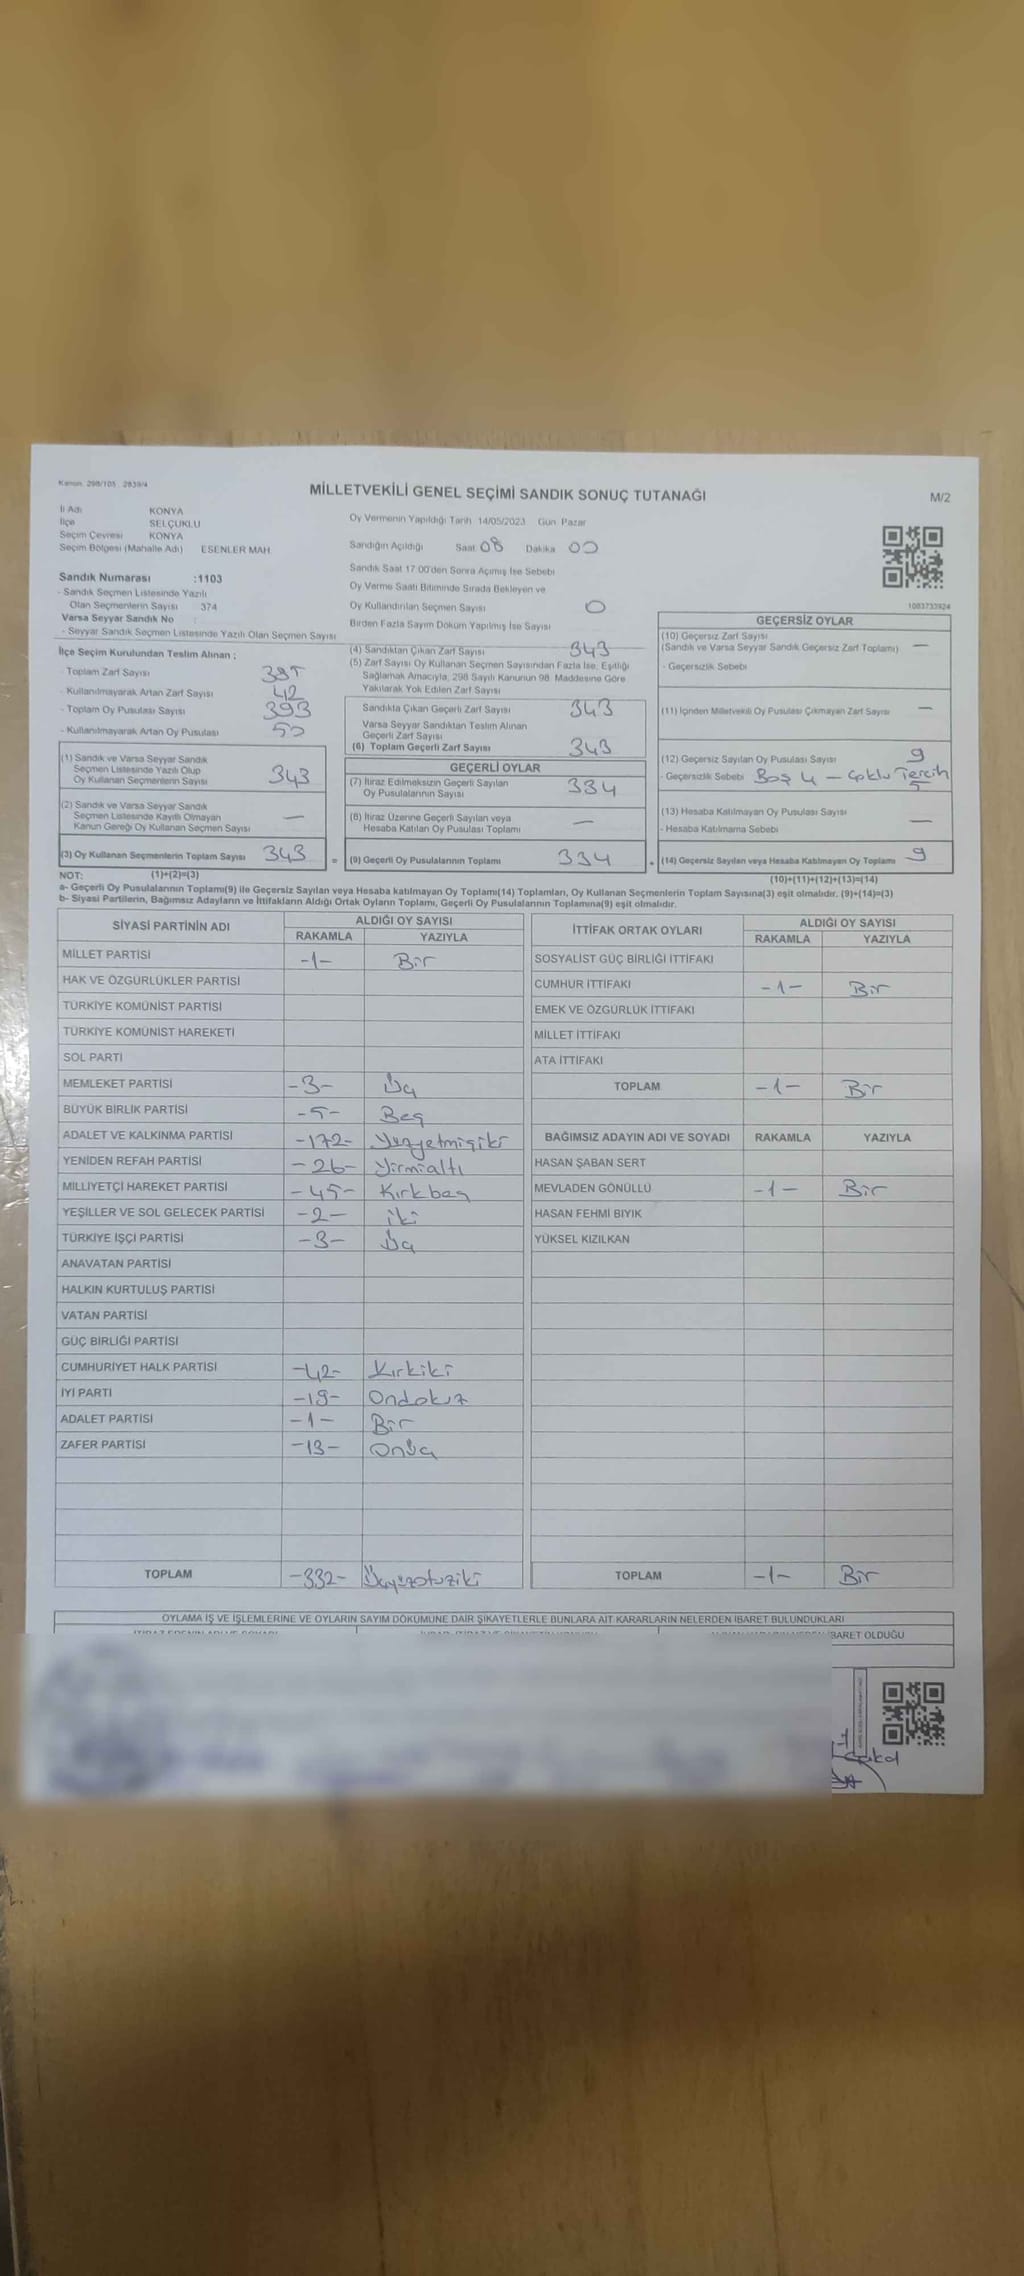 Kanun 298/105 2839/4
MİLLETVEKİLİ GENEL SEÇİMİ SANDIK SONUÇ TUTANAĞI
M/2
İl Adı KONYA
İlçe SELÇUKLU
Seçim Çevresi KONYA
Seçim Bölgesi (Mahalle Adı) ESENLER MAH.
Oy Vermenin Yapıldığı Tarih 14/05/2023 Gün Pazar
Sandığın Açıldığı Saat 08 Dakika 00
Sandık Saat 17:00'den Sonra Açımış İse Sebebi
Oy Verme Saati Bitiminde Sırada Bekleyen ve
Oy Kullandırılan Seçmen Sayısı 0
Birden Fazla Sayım Döküm Yapılmış İse Sayısı
1083733924
Sandık Numarası :1103
- Sandık Seçmen Listesinde Yazılı
Olan Seçmenlerin Sayısı 374
Varsa Seyyar Sandık No :
- Seyyar Sandık Seçmen Listesinde Yazılı Olan Seçmen Sayısı
İlçe Seçim Kurulundan Teslim Alınan ;
- Toplam Zarf Sayısı 385
- Kullanılmayarak Artan Zarf Sayısı 42
- Toplam Oy Pusulası Sayısı 393
- Kullanılmayarak Artan Oy Pusulası 50
(1) Sandık ve Varsa Seyyar Sandık
Seçmen Listesinde Yazılı Olup
Oy Kullanan Seçmenlerin Sayısı 343
(2) Sandık ve Varsa Seyyar Sandık
Seçmen Listesinde Kayıtlı Olmayan
Kanun Gereği Oy Kullanan Seçmen Sayısı —
(3) Oy Kullanan Seçmenlerin Toplam Sayısı 343 =
(4) Sandıktan Çıkan Zarf Sayısı 343
(5) Zarf Sayısı Oy Kullanan Seçmen Sayısından Fazla İse, Eşitliği
Sağlamak Amacıyla, 298 Sayılı Kanunun 98. Maddesine Göre
Yakılarak Yok Edilen Zarf Sayısı
Sandıkta Çıkan Geçerli Zarf Sayısı 343
Varsa Seyyar Sandıktan Teslim Alınan
Geçerli Zarf Sayısı
(6) Toplam Geçerli Zarf Sayısı 343
GEÇERLİ OYLAR
(7) İtiraz Edilmeksizin Geçerli Sayılan
Oy Pusulalarının Sayısı 334
(8) İtiraz Üzerine Geçerli Sayılan veya
Hesaba Katılan Oy Pusulası Toplamı —
(9) Geçerli Oy Pusulalarının Toplamı 334
GEÇERSİZ OYLAR
(10) Geçersiz Zarf Sayısı
(Sandık ve Varsa Seyyar Sandık Geçersiz Zarf Toplamı) —
- Geçersizlik Sebebi
(11) İçinden Milletvekili Oy Pusulası Çıkmayan Zarf Sayısı —
(12) Geçersiz Sayılan Oy Pusulası Sayısı 9
- Geçersizlik Sebebi Boş 4 — Çoklu Tercih 5
(13) Hesaba Katılmayan Oy Pusulası Sayısı —
- Hesaba Katılmama Sebebi
(14) Geçersiz Sayılan veya Hesaba Katılmayan Oy Toplamı 9
NOT: (1)+(2)=(3)
(10)+(11)+(12)+(13)=(14)
a- Geçerli Oy Pusulalarının Toplamı(9) ile Geçersiz Sayılan veya Hesaba katılmayan Oy Toplamı(14) Toplamları, Oy Kullanan Seçmenlerin Toplam Sayısına(3) eşit olmalıdır. (9)+(14)=(3)
b- Siyasi Partilerin, Bağımsız Adayların ve İttifakların Aldığı Ortak Oyların Toplamı, Geçerli Oy Pusulalarının Toplamına(9) eşit olmalıdır.
SİYASİ PARTİNİN ADI ALDIĞI OY SAYISI
RAKAMLA YAZIYLA
MİLLET PARTİSİ -1- Bir
HAK VE ÖZGÜRLÜKLER PARTİSİ
TÜRKİYE KOMÜNİST PARTİSİ
TÜRKİYE KOMÜNİST HAREKETİ
SOL PARTİ
MEMLEKET PARTİSİ -3- Üç
BÜYÜK BİRLİK PARTİSİ -5- Beş
ADALET VE KALKINMA PARTİSİ -172- Yüzyetmişiki
YENİDEN REFAH PARTİSİ -26- Yirmialtı
MİLLİYETÇİ HAREKET PARTİSİ -45- Kırkbeş
YEŞİLLER VE SOL GELECEK PARTİSİ -2- iki
TÜRKİYE İŞÇİ PARTİSİ -3- Üç
ANAVATAN PARTİSİ
HALKIN KURTULUŞ PARTİSİ
VATAN PARTİSİ
GÜÇ BİRLİĞİ PARTİSİ
CUMHURİYET HALK PARTİSİ -42- Kırkiki
İYİ PARTİ -19- Ondokuz
ADALET PARTİSİ -1- Bir
ZAFER PARTİSİ -13- Onüç
TOPLAM -332- Üçyüzotuziki
İTTİFAK ORTAK OYLARI ALDIĞI OY SAYISI
RAKAMLA YAZIYLA
SOSYALİST GÜÇ BİRLİĞİ İTTİFAKI
CUMHUR İTTİFAKI -1- Bir
EMEK VE ÖZGÜRLÜK İTTİFAKI
MİLLET İTTİFAKI
ATA İTTİFAKI
TOPLAM -1- Bir
BAĞIMSIZ ADAYIN ADI VE SOYADI RAKAMLA YAZIYLA
HASAN ŞABAN SERT
MEVLADEN GÖNÜLLÜ -1- Bir
HASAN FEHMİ BIYIK
YÜKSEL KIZILKAN
TOPLAM -1- Bir
OYLAMA İŞ VE İŞLEMLERİNE VE OYLARIN SAYIM DÖKÜMÜNE DAİR ŞİKAYETLERLE BUNLARA AİT KARARLARIN NELERDEN İBARET BULUNDUKLARI
İBARET OLDUĞU